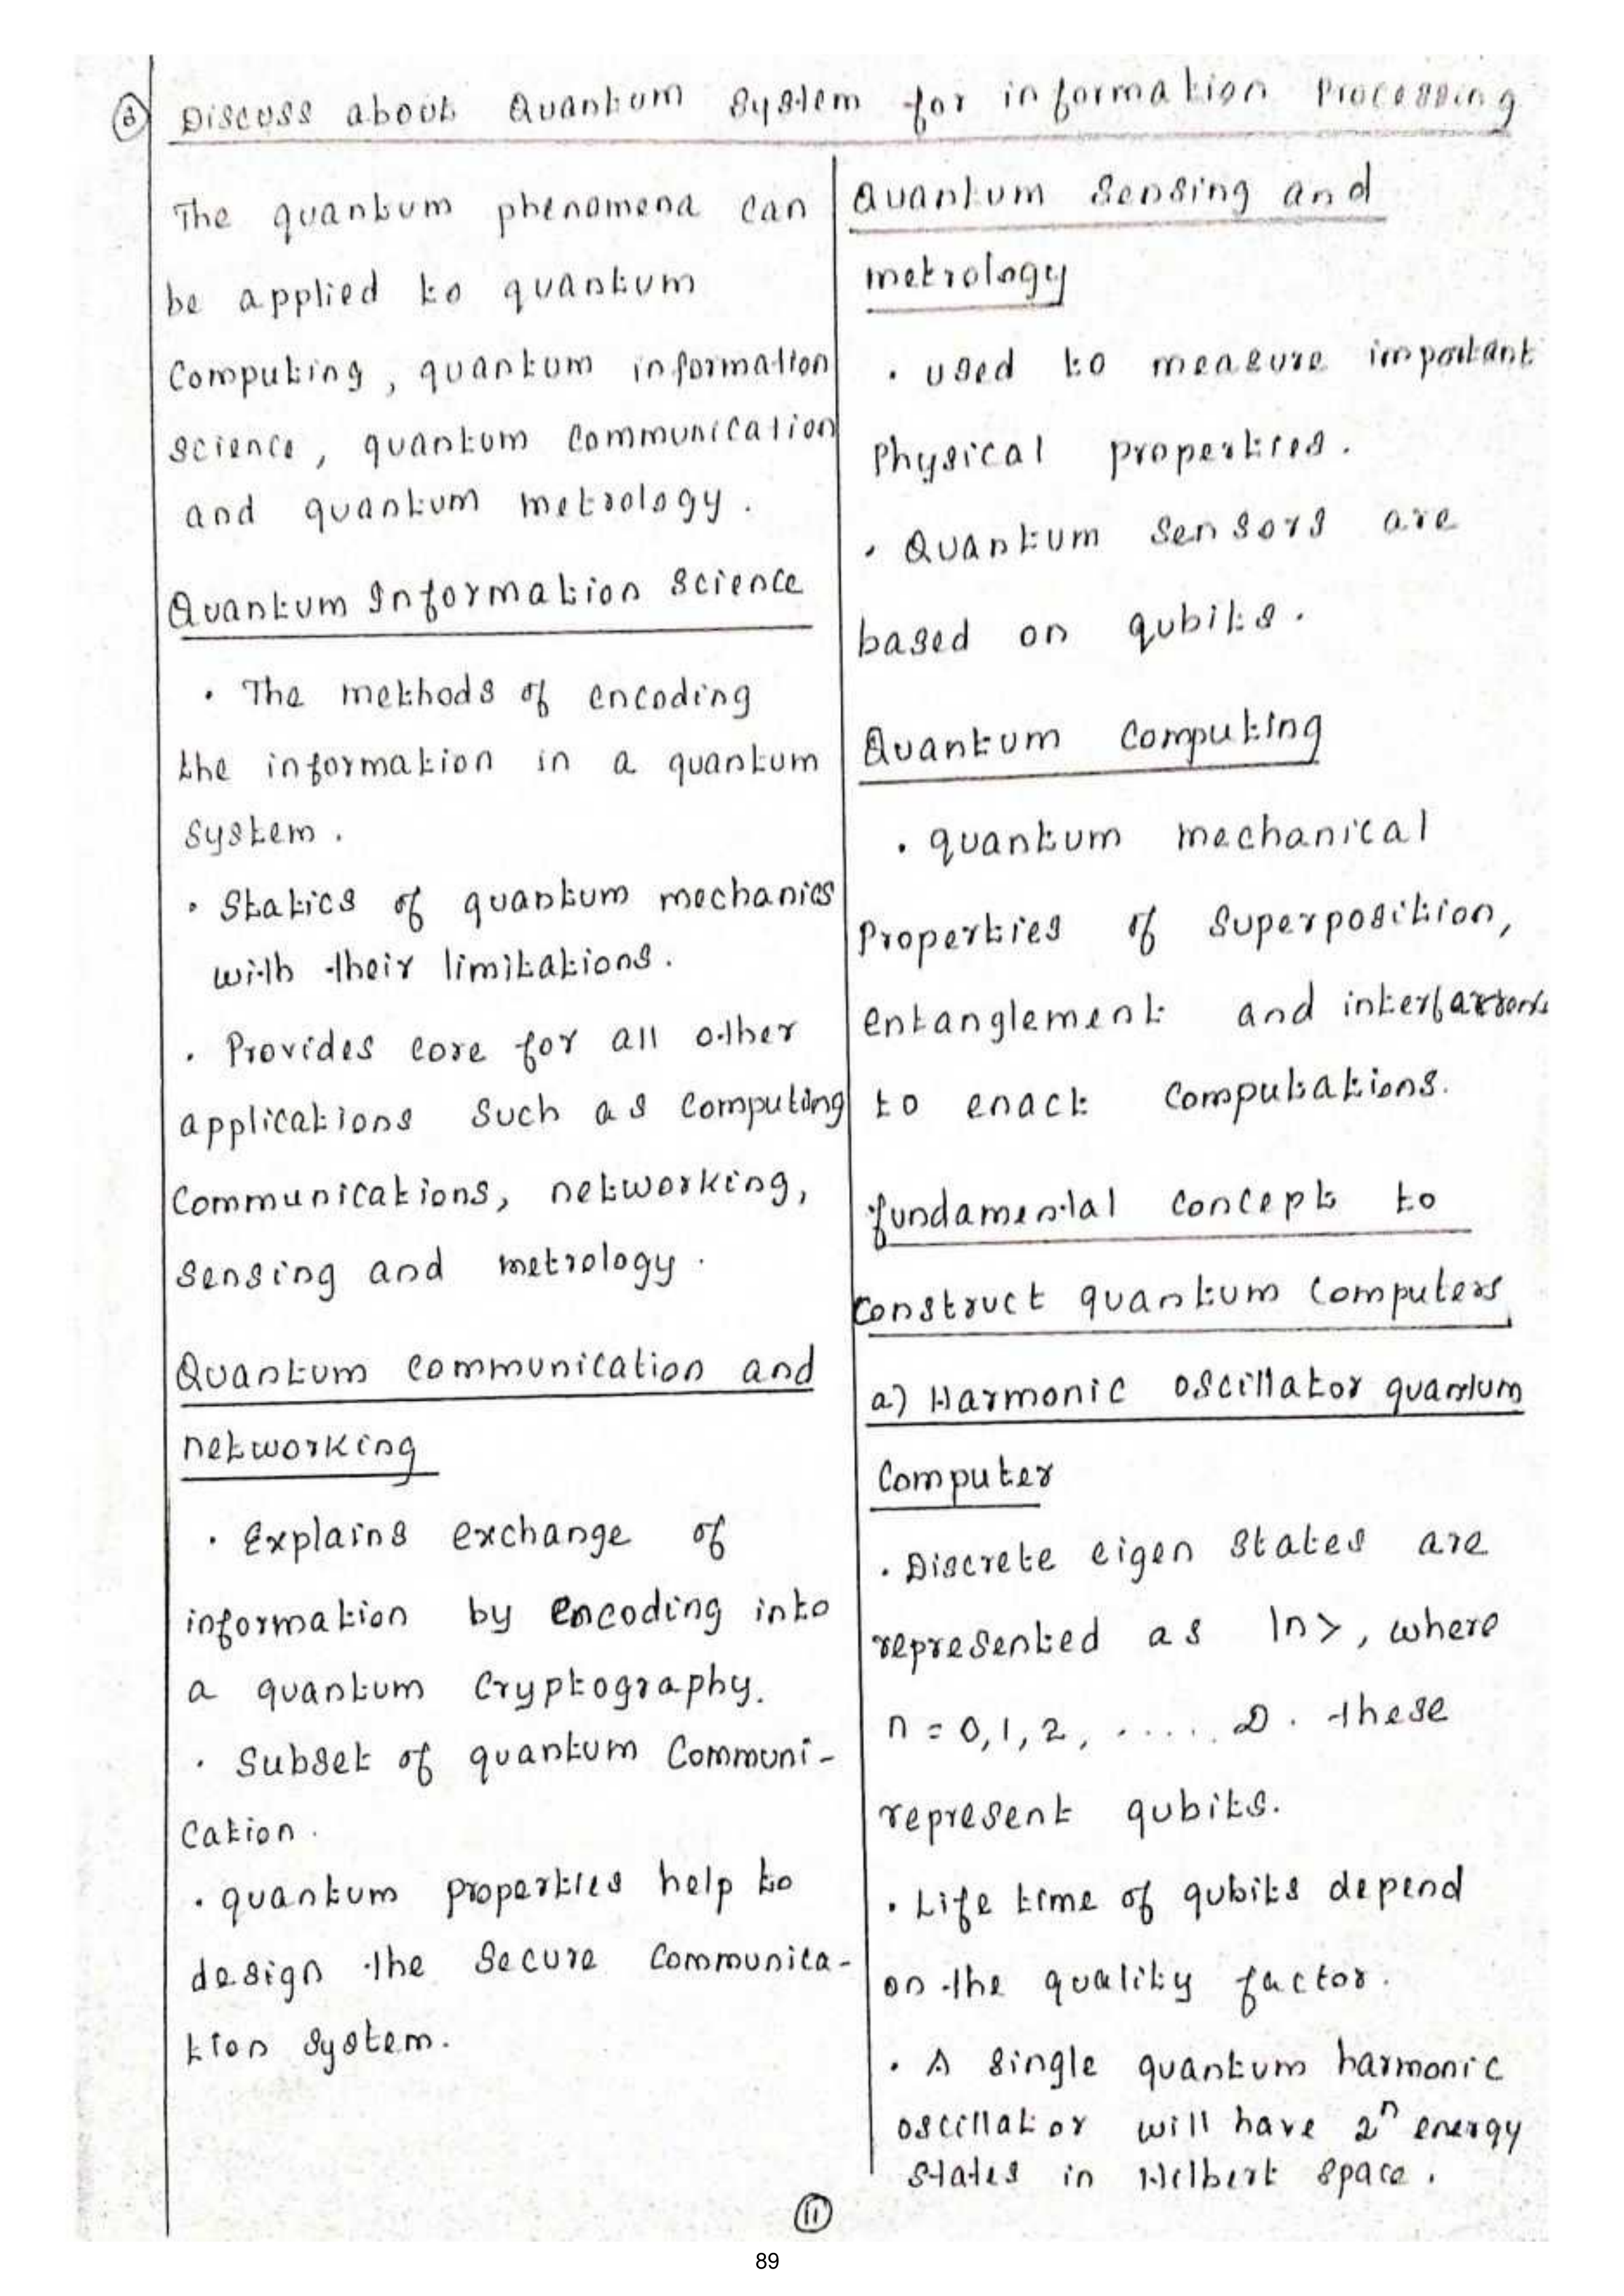 6 Discuss about Quantum System for information Processing
The quantum phenomena can
be applied to quantum
Computing, quantum information
science, quantum communication
and quantum metrology.
Quantum Information Science
• The methods of encoding
the information in a quantum
System.
• Statics of quantum mechanics
with their limitations.
• Provides core for all other
applications Such as computing
Communications, networking,
Sensing and metrology.
Quantum communication and
networking
• Explains exchange of
information by encoding into
a quantum Cryptography.
• Subset of quantum Communi-
cation.
• quantum properties help to
design the Secure Communica-
tion System.
Quantum Sensing and
metrology
• used to measure important
Physical properties.
• Quantum Sensors are
based on qubits.
Quantum Computing
• quantum mechanical
Properties of Superposition,
entanglement and
to enact Computations.
fundamental concept to
construct quantum Computers
a) Harmonic oscillator quantum
Computer
• Discrete eigen States are
represented as |n>, where
n = 0, 1, 2, ..... These
represent qubits.
• Life time of qubits depend
on the quality factor.
• A single quantum harmonic
oscillator will have 2ⁿ energy
States in Hilbert Space.
11
89